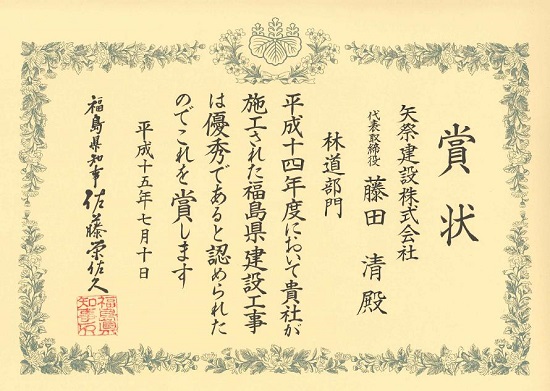 賞状
矢祭建設株式会社
代表取締役 藤田 清 殿
林道部門
平成十四年度において貴社が
施工された福島県建設工事
は優秀であると認められた
のでこれを賞します
平成十五年七月十日
福島県知事 佐藤栄佐久
福島県
知事之印